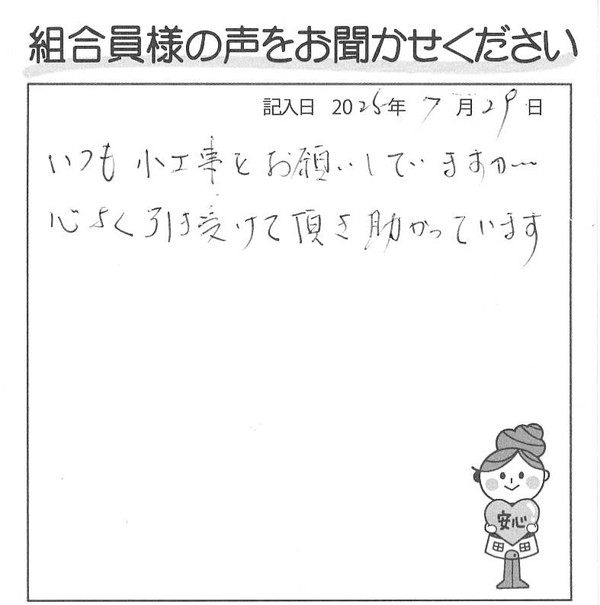 組合員様の声をお聞かせください
記入日 2025年 7月29日
いつも小工事をお願いしていますが…
心よく引き受けて頂き助かっています
安心